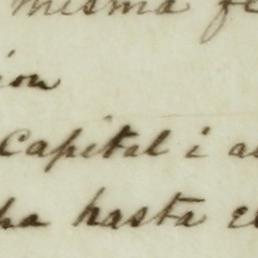 misma fe
ion
Capital i a
pa hasta e